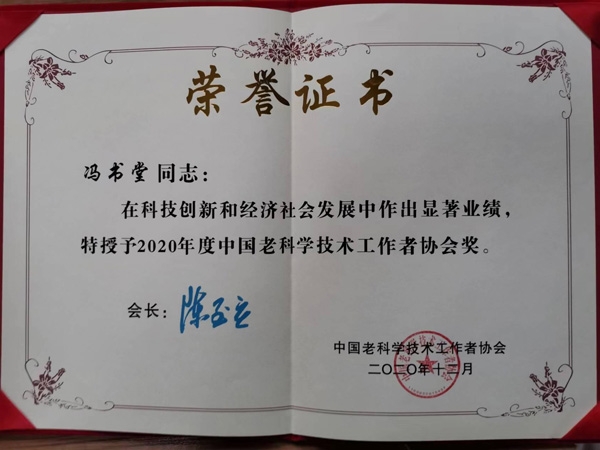 荣誉证书
冯书堂 同志：
在科技创新和经济社会发展中作出显著业绩，
特授予2020年度中国老科学技术工作者协会奖。
会长：陈至立
中国老科学技术工作者协会
二〇二〇年十一月